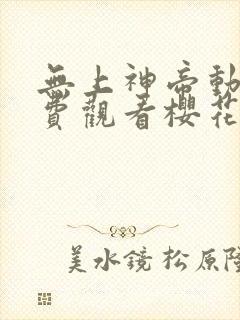 無上神帝動
費觀看櫻花
美水鏡 松原隆